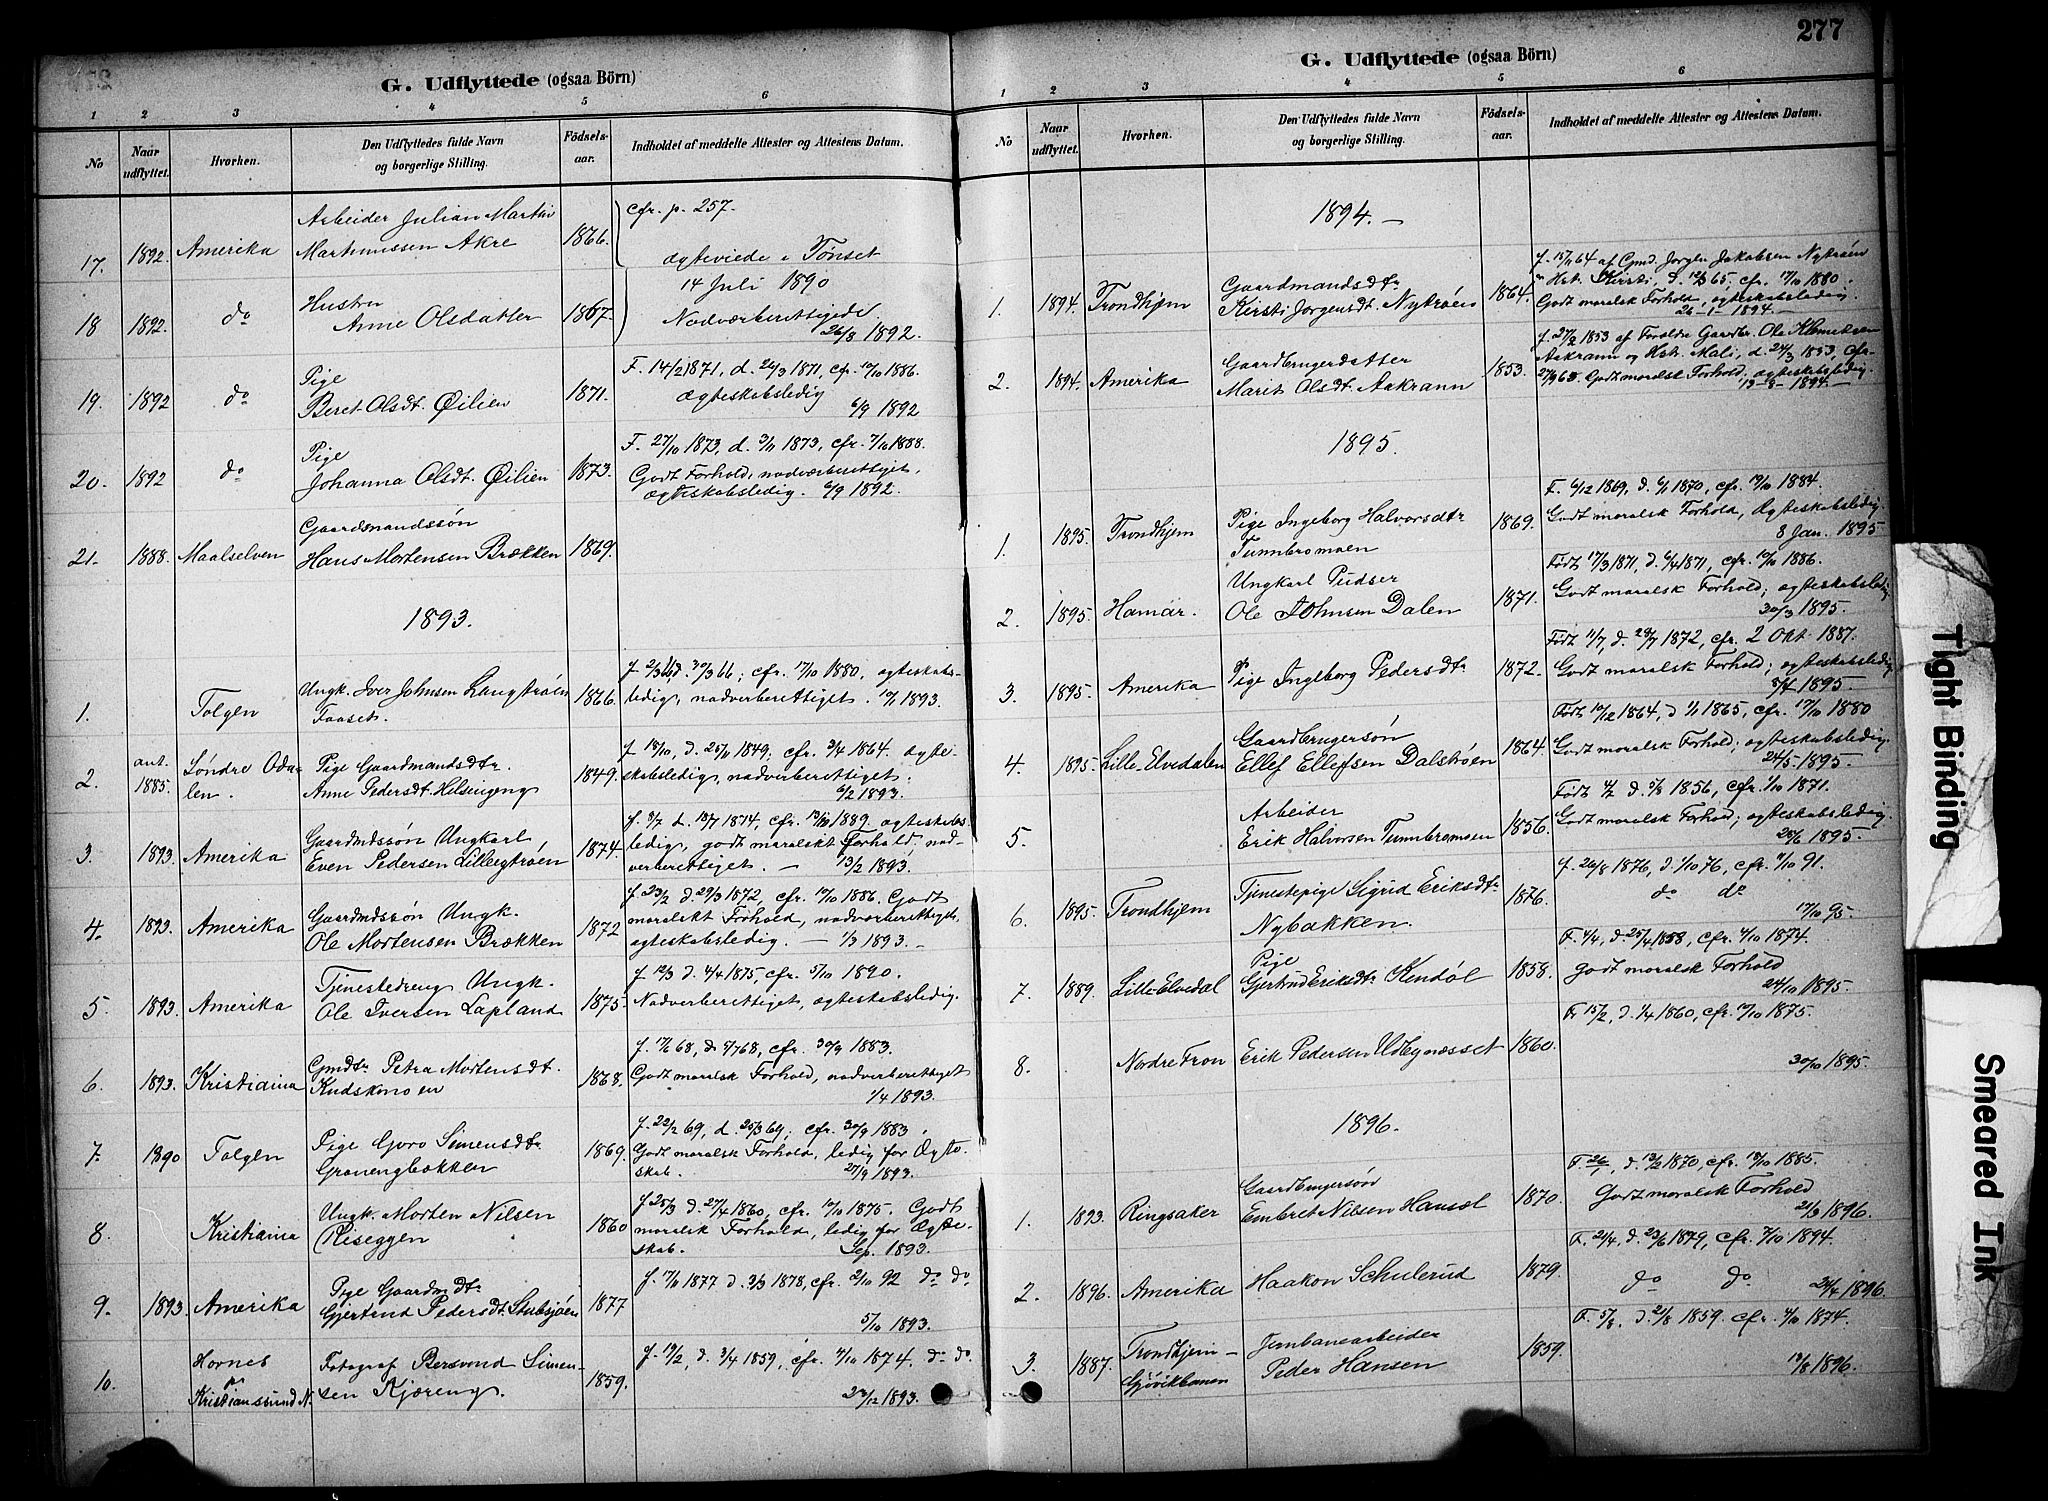 277
G. Udflyttede (ogsaa Börn)
1 2 3 4 5 6
No
Naar udflyttet.
Hvorhen.
Den Udflyttedes fulde Navn og borgerlige Stilling.
Födsels-aar.
Indholdet af meddelte Attester og Attestens Datum.
17. 1892. Amerika Arbeider Julian Martin 1866. cfr. p. 257.
Martinussen Akre ægteviede i Tönset
14 Juli 1890
18 1892. do Hustru 1867. Nadverberettigede.
Anne Olsdatter 26/8 1892.
19. 1892 do Pige 1871. F. 14/2 1871, d. 26/3 1871, cfr. 17/10 1886.
Beret Olsdt. Øilien Ægteskabsledig 6/9 1892
20. 1892 do Pige 1873. F. 27/10 1873, d. 3/11 1873, cfr. 7/10 1888.
Johanna Olsdt. Øilien Godt Forhold, nadværberettiget,
ægteskabsledig. 6/9 1892.
21. 1888. Maalselven Gaardmandssön 1869.
Hans Mortensen Brækken
1893.
1. Tolgen Ungk. Iver Johnsen Langtrøen 1866. cfr. 17/10 1880, ægteskabs-
Faaset. ledig, nadverberettiget. 1893.
2. ant. 1885. Søndre Oda- Pige Gaardmandsdtr. 1849. f. 18/10, d. 25/11 1849; cfr. 3/4 1864. ægte-
len. Anne Pedersdt. Hilsingeng skabsledig, nadverberettiget.
6/2 1893.
3. 1893. Amerika Gaardmdssön Ungkarl 1874. 1874, cfr. 1889. ægteskabs-
Even Pedersen Lillegtrøen ledig, godt moralskt Forhold, nad-
verberettiget. — 13/2 1893.
4. 1893. Amerika Gaardmdssön Ungk. 1872 f. 23/2 d. 29/3 1872, cfr. 17/10 1886. Godt
Ole Mortensen Brækken moralskt Forhold, nadverberettiget,
ægteskabsledig. — 1/3 1893. —
5. 1893. Amerika Tjenestedreng Ungk. 1875. f. 12/3 d. 4/4 1875, cfr. 5/10 1890.
Ole Iversen Lapland Nadverberettiget, ægteskabsledig.
6. 1893. Kristiania Gmdtr Petra Mortensdt. 1868. cfr. 30/9 1883.
Kudskomoen Godt moralsk Forhold, nadverberettiget
1/4 1893.
7. 1890 Tolgen Pige Goro Simensdtr 1869. f. 22/2 69, d. 25/3 69; cfr. 30/9 1883.
Granengbakken Godt moralsk Forhold, ledig for Ægte-
skab. 27/9 1893.
8. Kristiania Ungk. Morten Nilsen 1860 f. 25/3 d. 27/4 1860, cfr. 17/10 1875. Godt
Riseggen moralsk Forhold, ledig for Ægte-
skab. Sep. 1893.
9. 1893. Amerika Pige Gaardmdtr 1877 1877 d. 1878, cfr. 2/10 92 do do
Gjertrud Pedersdt. Stubsjøen 5/10 1893.
10. Hornes Fotograf Bersvend Simen- 1859. d. 3/4 1859, cfr. 1874, do do
pr Kristianssund N. sen Kjæreng. 1893.
G. Udflyttede (ogsaa Börn)
1 2 3 4 5 6
No
Naar udflyttet.
Hvorhen.
Den Udflyttedes fulde Navn og borgerlige Stilling.
Födsels-aar.
Indholdet af meddelte Attester og Attestens Datum.
1894. —
1. 1894. Trondhjem Gaardmandsdtr 1864. af Gmd. Jørgen Jakobsen Nytrøen
Kirsti Jorgensdt. Nytrøen Hst. Kirsti, cfr. 17/10 1880.
Godt moralsk Forhold, ægteskabsledig.
26-1-1894.—
2. 1894. Amerika Gaardbrugerdatter 1853. f. 27/2 1853 af Forældre Gaardbr. Ole Klemetsen
Marit Olsdt. Aakrann Aakrann og Hst. Mali, d. 24/3 1853, cfr.
Godt moralsk Forhold, ægteskabsledig.
1894.—
1895.
1. 1895. Trondhjem Pige Ingeborg Halvorsdtr 1869. F. 6/12 1869, d. 6/1 1870, cfr. 1884.
Tunnbromoen Godt moralsk Forhold, Ægteskabsledig.
8 Jan. 1895
2. 1895. Hamar. Ungkarl Pudser 1871. Födt 17/3 1871, d. 6/4 1871, cfr. 1886.
Ole Johnsen Dalen Godt moralsk Forhold; ægteskabsledig
30/3 1895.
3. 1895. Amerika Pige Ingeborg Pedersdtr 1872. Födt 11/7, d. 28/7 1872, cfr. 2 Okt. 1887.
Godt moralsk Forhold; ægteskabsledig
1895.
4. 1895. Lille-Elvedalen Gaardbrugersön 1864. Födt 10/12 1864, d. 1/1 1865, cfr. 17/10 1880
Ellef Ellefsen Dalstrøen Godt moralsk Forhold; ægteskabsledig.
24/5 1895.
5. Arbeider 1856. 1856, cfr. 1/10 1871.
Erik Halvorsen Tunnbromoen Godt moralsk Forhold; ægteskabsledig.
1895.
6. 1895. Trondhjem Tjenestepige Sigrid Eriksdtr 1876. f. 26/8 1876, d. 1/10 76, cfr. 91.
Nybakken. do do
17/10 95.
7. 1889. Lille-Elvedal Pige 1858. F. 4/4, d. 25/4 1858, cfr. 4/10 1874.
Gjertrud Eriksdtr Kindøl godt moralsk Forhold
24/10 1895.
8. Nordre Fron Erik Pedersen Udbynæsset 1860. F. 15/2, d. 1/4 1860, cfr. 17/10 1875.
30/10 1895.
1896.
1. 1893. Ringsaker Gaardbrugersøn 1870. d. 13/2 1870, cfr. 1885.
Embret Nilsen Hansøl Godt moralsk Forhold
21/3 1896.
2. 1896. Amerika Haakon Schulerud 1879. F. 21/4, d. 23/6 1879, cfr. 7/10 1894.
do do 24/4 1896.
3. 1887. Trondhjem— Jernbanearbeider 1859. d. 21/8 1859. cfr. 4/10 1874.
Gjøvikbanen Peder Hansen 1896.
Tight Binding
Smeared Ink